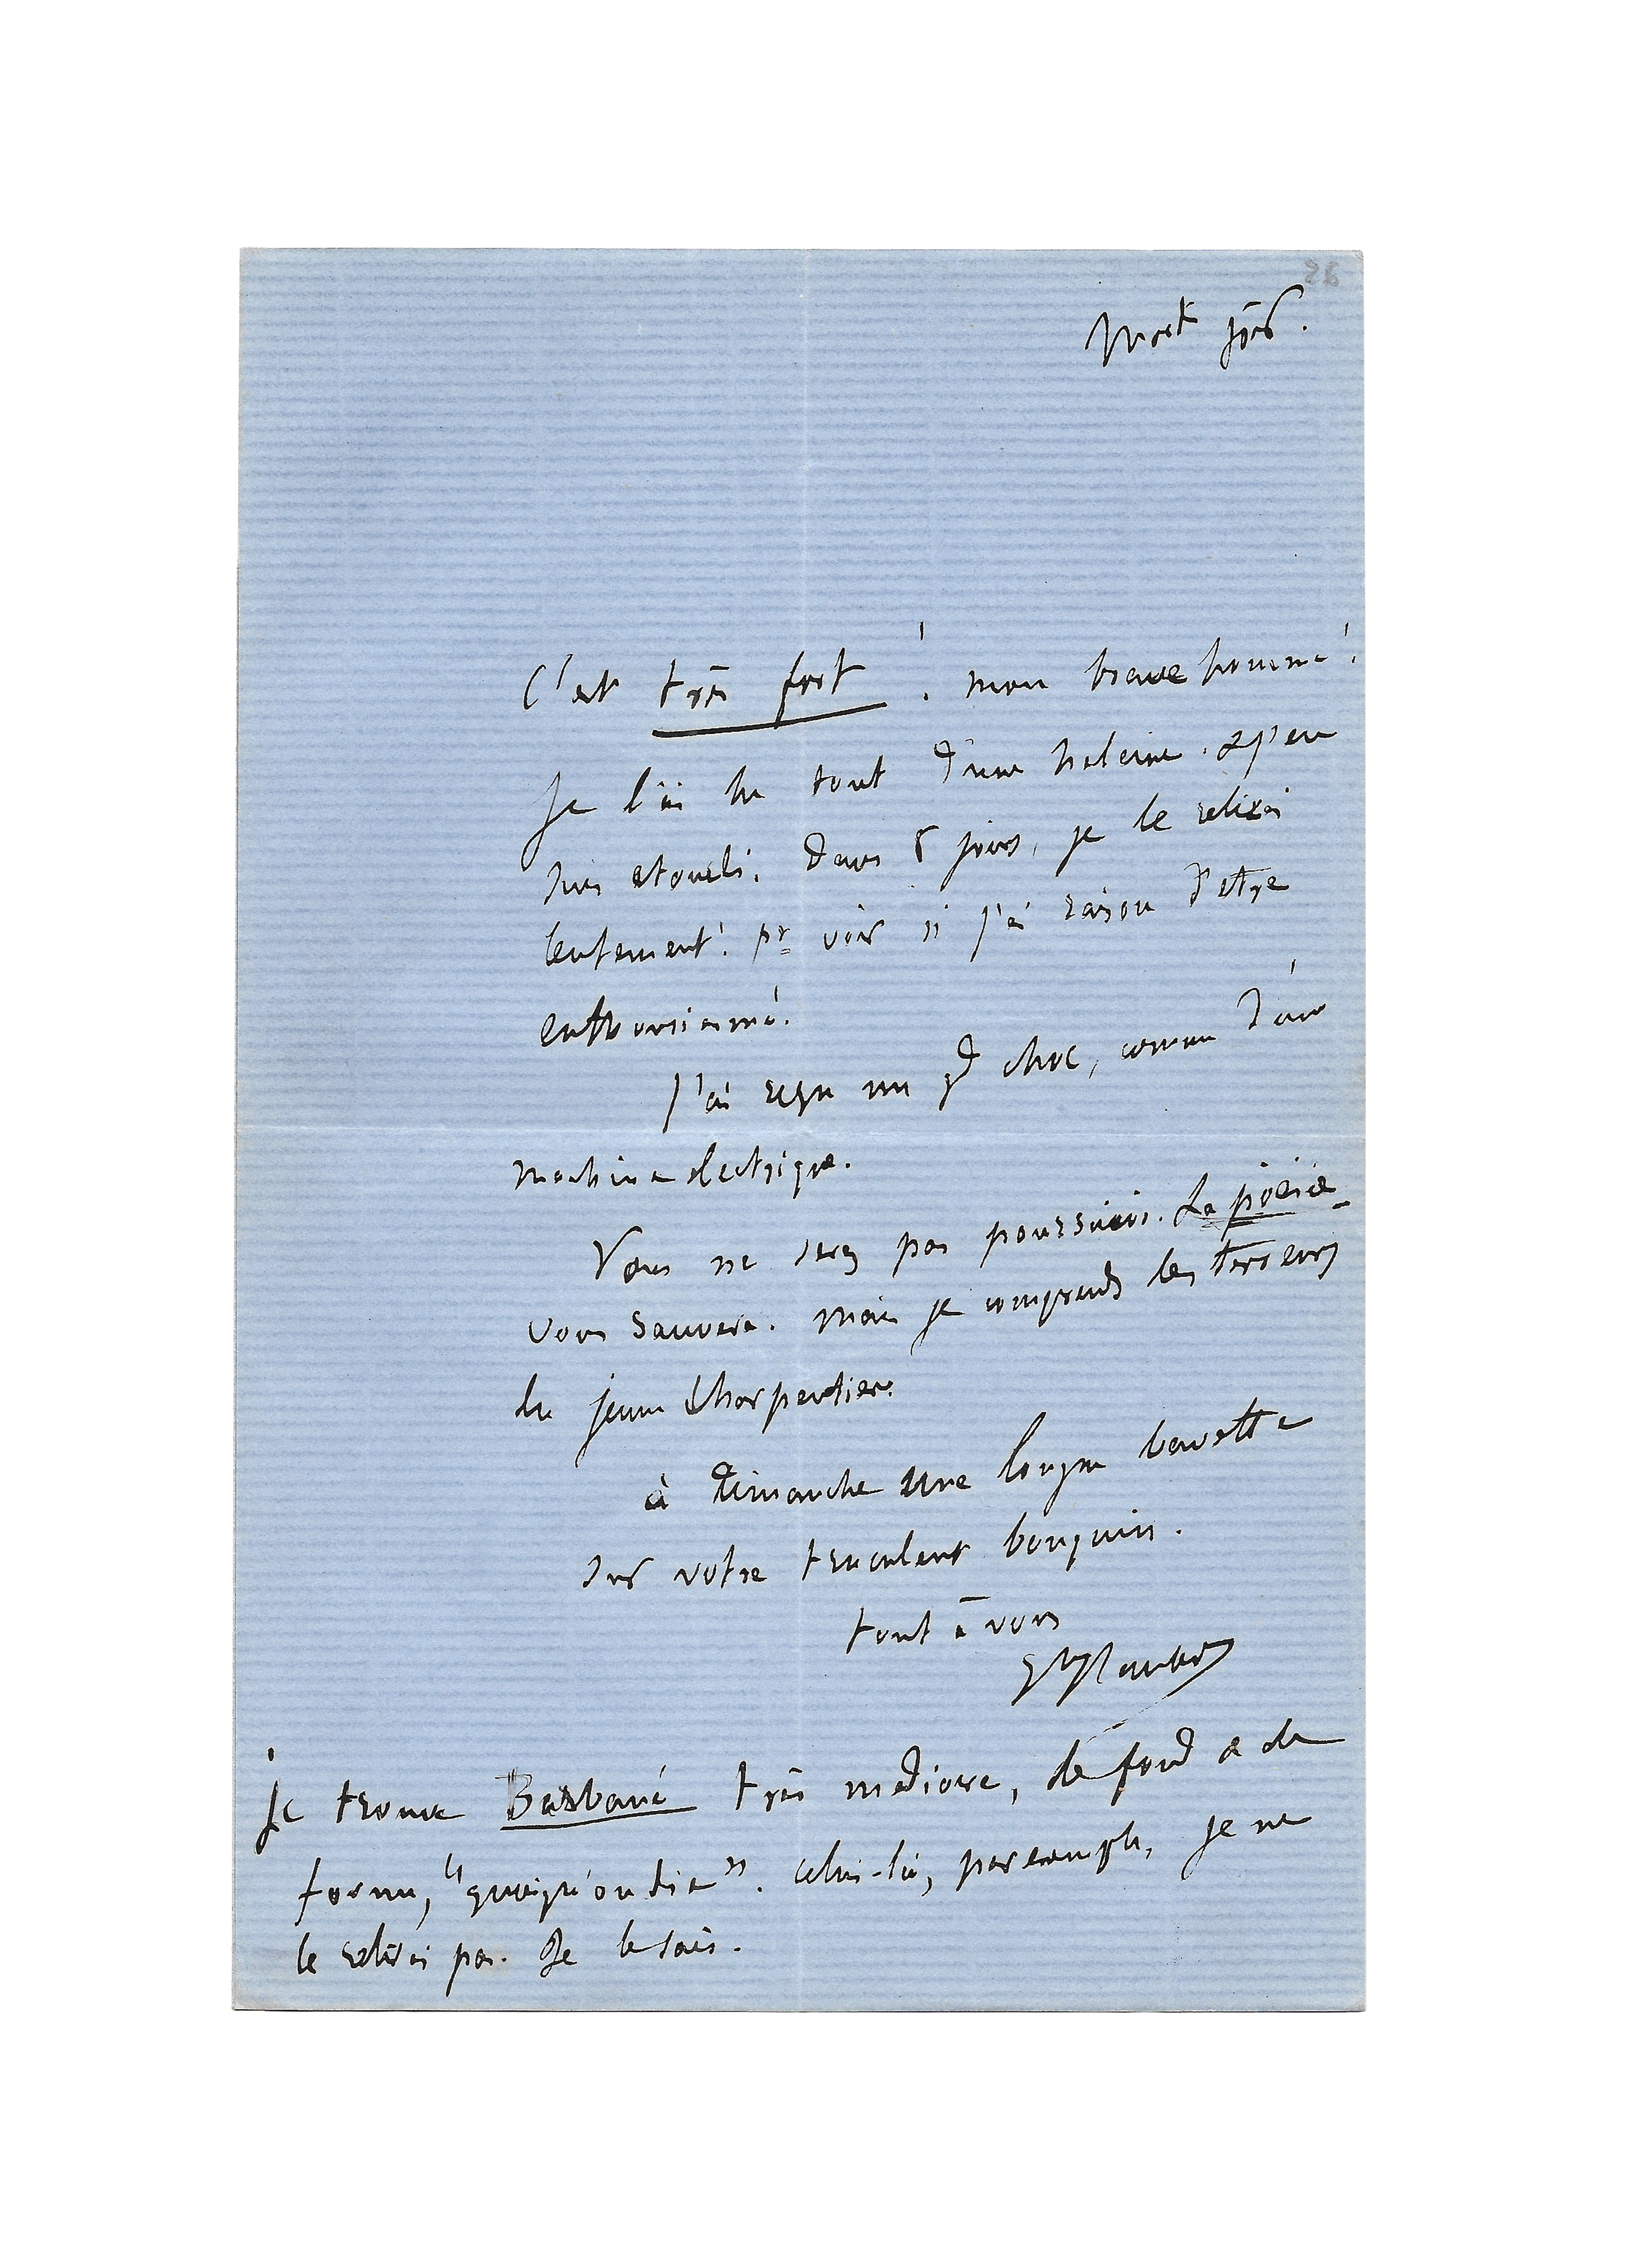 C'est très fort ! mon brave homme !
Je l'ai lu tout d'une haleine. & j'en
suis étourdi. Dans 8 jours, je le relirai
lentement ! pr voir si j'ai raison d'être
enthousiasmé.
J'ai reçu un gd choc, comme d'une
machine électrique.
Vous ne serez pas poursuivi. La poésie
vous sauvera. mais je comprends les terreurs
du jeune Charpentier.
à Dimanche une longue bavette
sur votre truculent bouquin.
tout à vous
Gve Flaubert
Je trouve Barbaré très médiocre, de fond & de
forme, "quoiqu'on die". Celui-là, par exemple, je ne
le relirai pas. Je le sais.